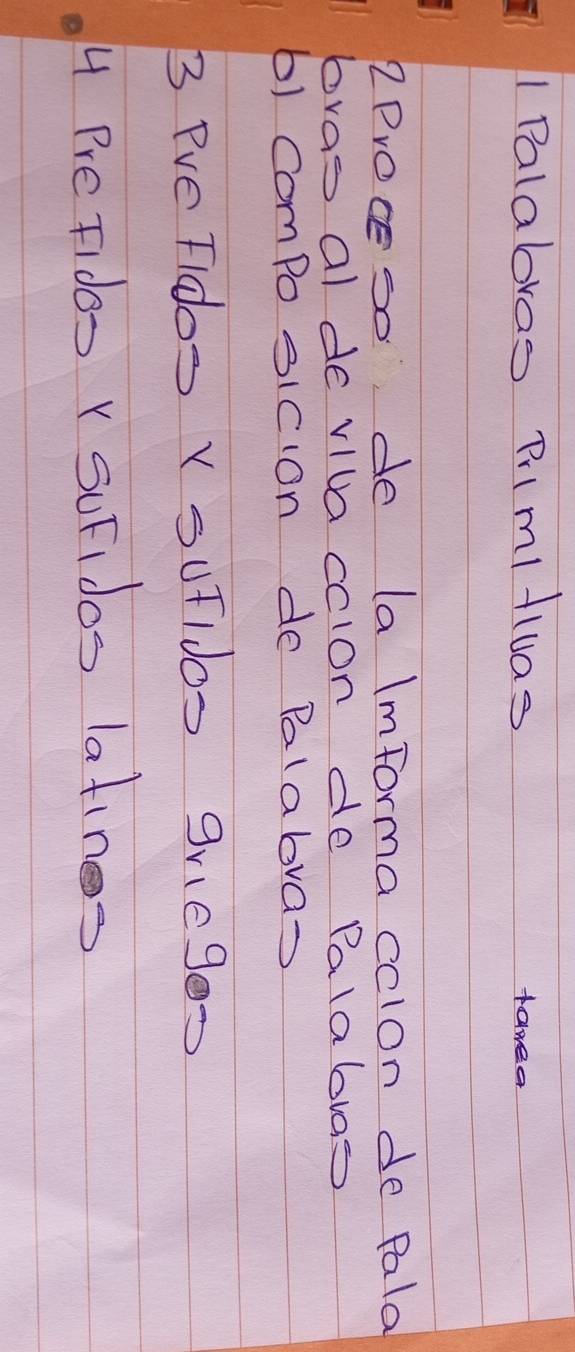 1 Palabras Primitivas tarea
2 Proceso de la Imformaccion de Pala
bras a) de rivaccion de Palabras
b) Composicion de Palabras
3 Prefidos y sufidos griegos
4 Prefidos y sufidos latinos